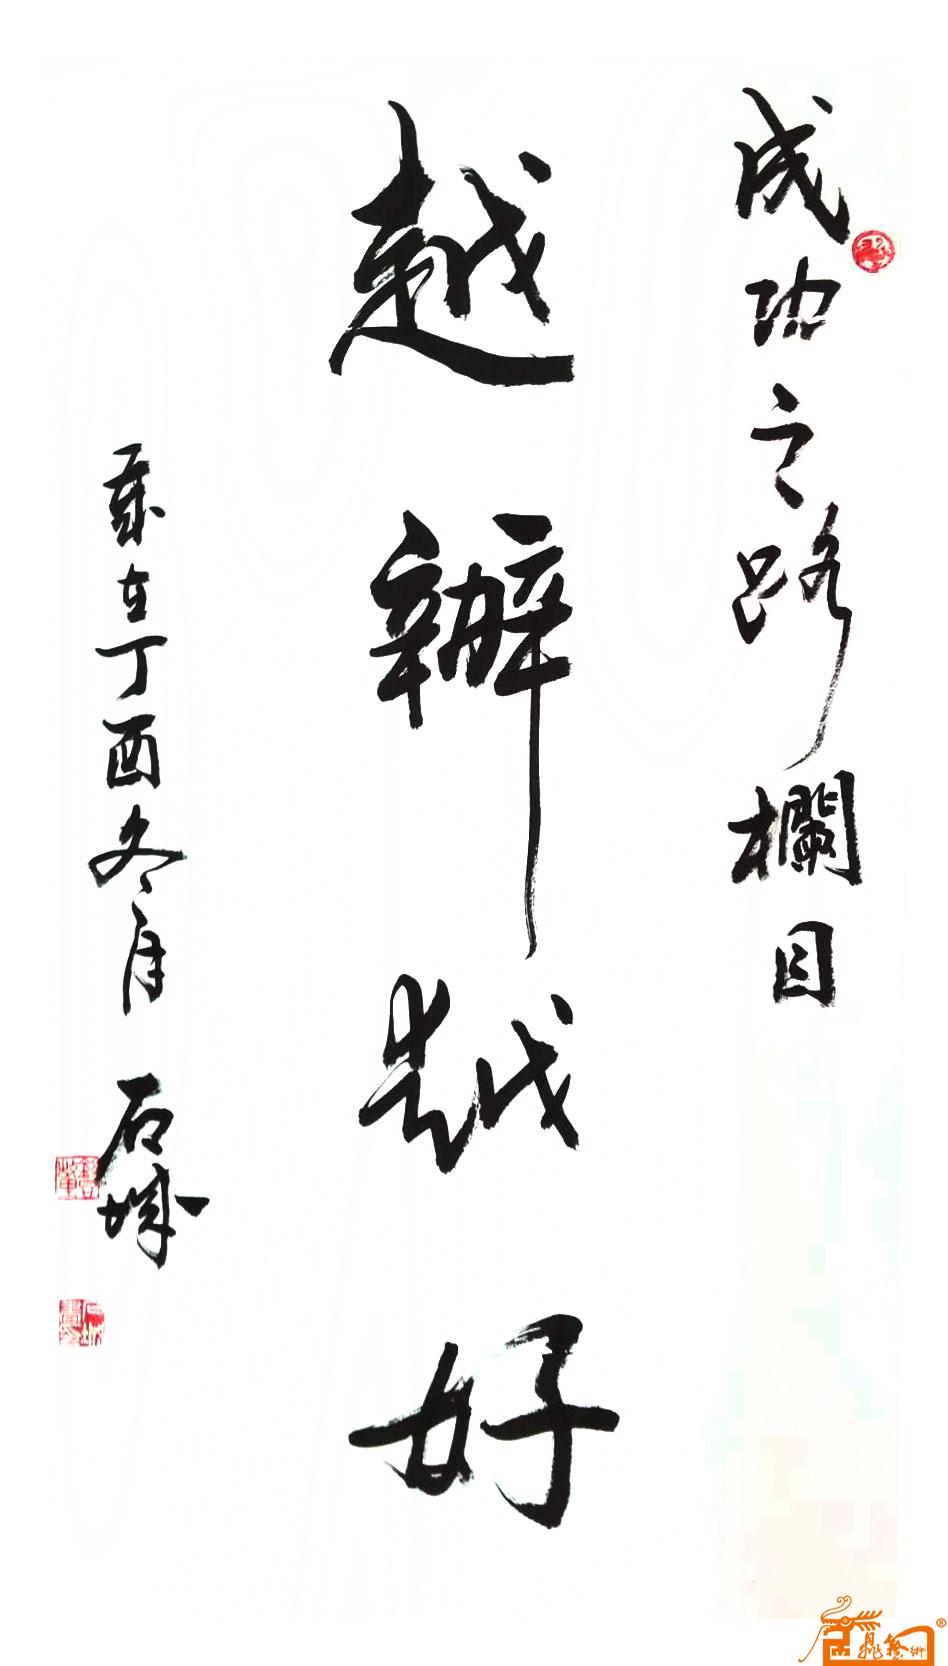 成功之路欄目
越辦越好
歲在丁酉冬月 石城